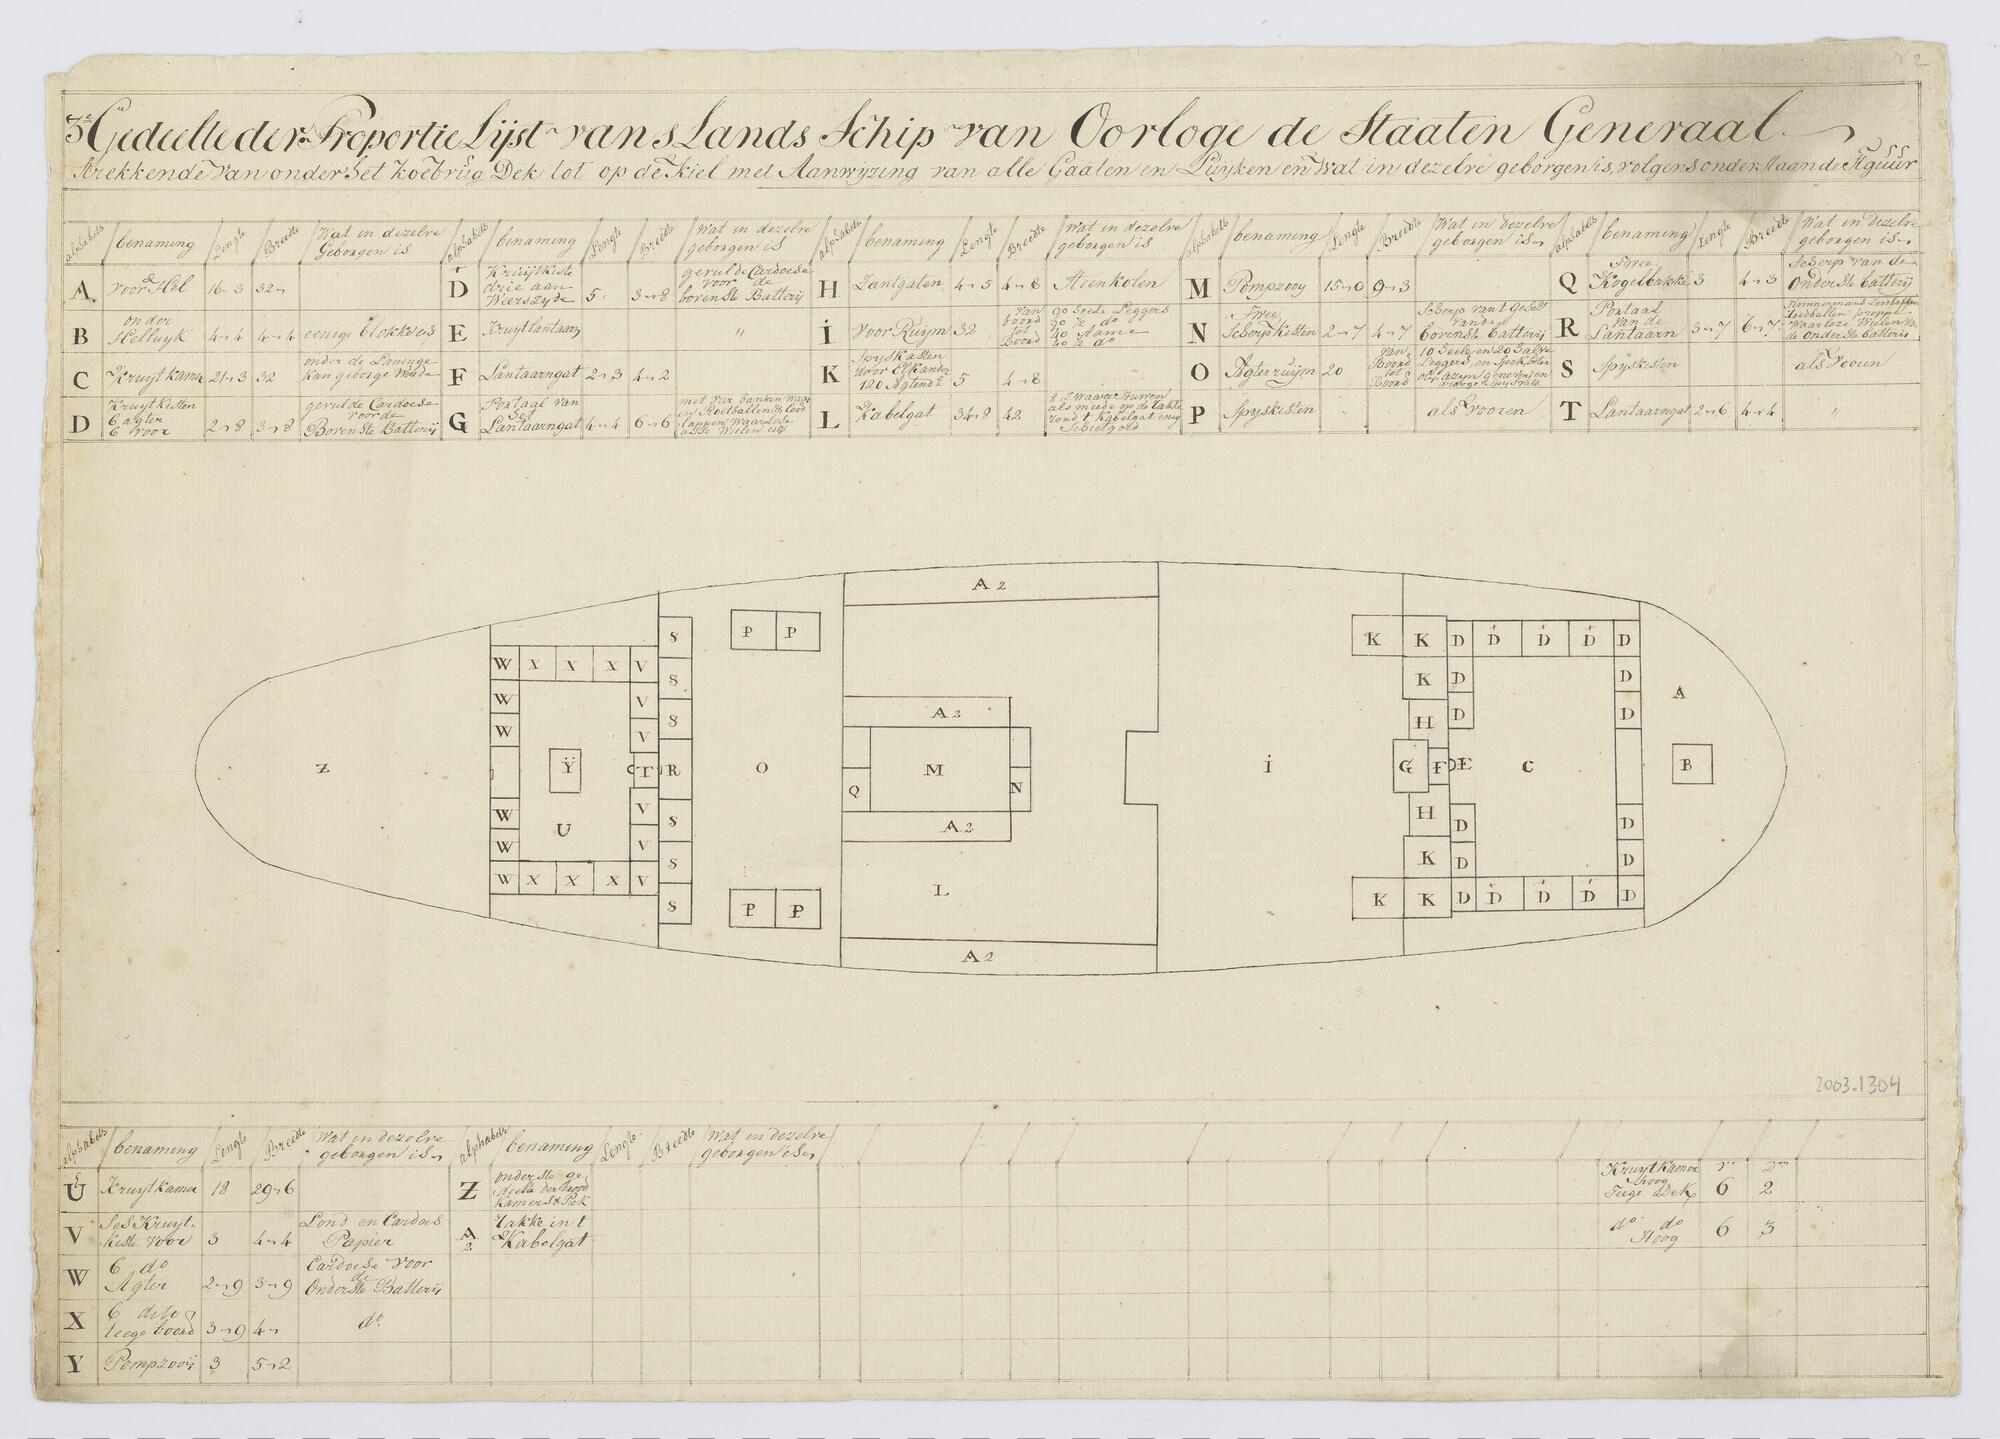 N 2
3e Gedeelte der Proportie Lijst van s Lands Schip van Oorloge de Staaten Generaal
Strekkende van onder het Koebrug Dek tot op de Kiel met Aanwyzing van alle Gaaten en Luijken en Wat in dezelve geborgen is, volgens onderstaande Figuur
alphabets benaming Lengte Breedte Wat in dezelve Geborgen is
A voor Hel 16-3 32-
B onder Helluyk 4-4 4-4 eenige blokken
C Kruyt kamer 21-3 32 onder de kan geborge
D Kruyt kisten 6 agter 6 voor 2-8 3-8 gevulde Cardoese voor de Bovenste Batterij
alphabets benaming Lengte Breedte Wat in dezelve geborgen is
D Kruijtkiste drie aan Weerszyde 5 3-8 gevulde Cardoese voor de bovenste Batterij
E Kruyt lantaarn "
F Lantaarngat 2-3 4-2
G Portaal van het Lantaarngat 4-4 6-6 met vier banken
alphabets benaming Lengte Breedte Wat in dezelve geborgen is
H Zantgaten 4-5 4-8 Steenkolen
i voor Ruijm 32 van boord tot Boord 90 heele Leggers 90 ½ do 40 Aame 40 ½ do
K Spyskasten door Elkander 120 5 4-8
L Kabelgat 34-8 42 8 Swaare Touwen als meede op de takke rond t Kabelgat enig Schietgoed
alphabets benaming Lengte Breedte Wat in dezelve geborgen is
M Pompzooy 15-0 9-3
N Twee Scherpkisten 2-7 4-7 Scherp van t geschut van de bovenste batterij
O Agterruijm 20 van Boord tot Boord 10 heele en 20 halve Leggers en Spek
P Spyskisten " als vooren
alphabets benaming Lengte Breedte Wat in dezelve geborgen is
Q Twee Kogelbakke 3 4-3 Scherp van de onderste batterij
R Portaal van de Lantaarn 3-7 6-7 de onderste batterij
S Spyskisten als vooren
T Lantaarngat 2-6 4-4 "
A 2
S P P K K D D D D D
W X X X V S K D D A
W V S H D D
W V
Z Ÿ T R O M i G F E C B
Q N
W V S A 2 H D D
U
W V S K D D
W X X X V S P P L K K D D D D D
A 2
2003.1304
alphabets benaming Lengte Breedte Wat in dezelve geborgen is
U Kruytkamer 18 29-6
V Ses Kruyt kiste voor 3 4-4 Lond en Cardoes Papier
W 6 do Agter 2-9 3-9 Cardoese voor de Onderste Batterij
X 6 dito teege boord 3-9 4- do
Y Pompzooij 3 5-2
alphabets benaming Lengte Breedte Wat in dezelve geborgen is
Z onderste gedeelte der brood kamer
A 2 takke in t Kabelgat
Kruyt kamer hoog Teege Dek 6 2
do do Hoog 6 3